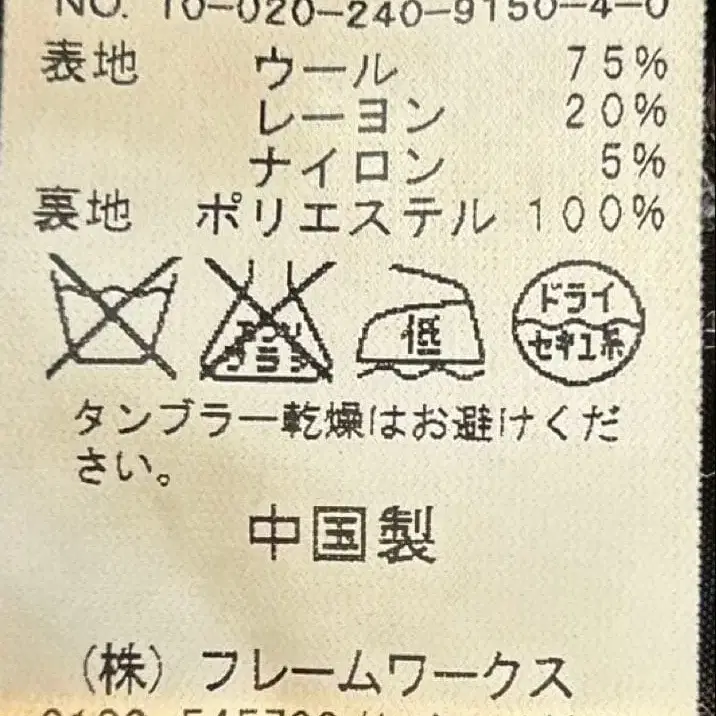 NO. 10-020-240-9150-4-0
表地 ウール 75%
レーヨン 20%
ナイロン 5%
裏地 ポリエステル 100%
エンソ
サラシ
低
ドライ
セキユ系
タンブラー乾燥はお避けくだ
さい。
中国製
(株) フレームワークス